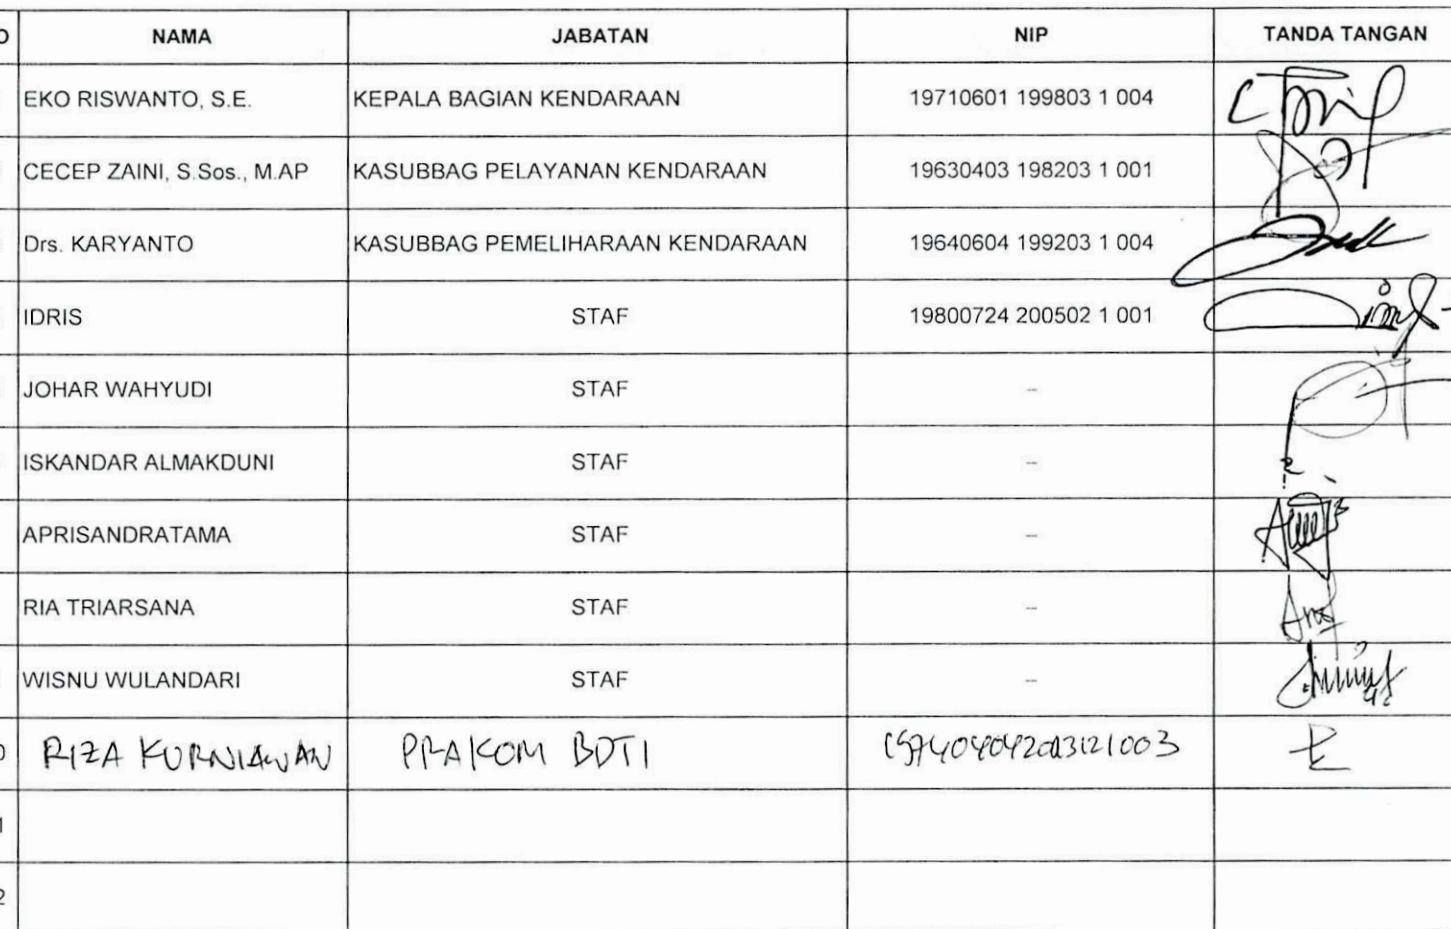 O NAMA JABATAN NIP TANDA TANGAN
EKO RISWANTO, S.E. KEPALA BAGIAN KENDARAAN 19710601 199803 1 004
CECEP ZAINI, S.Sos., M.AP KASUBBAG PELAYANAN KENDARAAN 19630403 198203 1 001
Drs. KARYANTO KASUBBAG PEMELIHARAAN KENDARAAN 19640604 199203 1 004
IDRIS STAF 19800724 200502 1 001
JOHAR WAHYUDI STAF --
ISKANDAR ALMAKDUNI STAF --
APRISANDRATAMA STAF --
RIA TRIARSANA STAF --
WISNU WULANDARI STAF --
0 RIZA KURNIAWAN PRAKOM BDTI
1
2